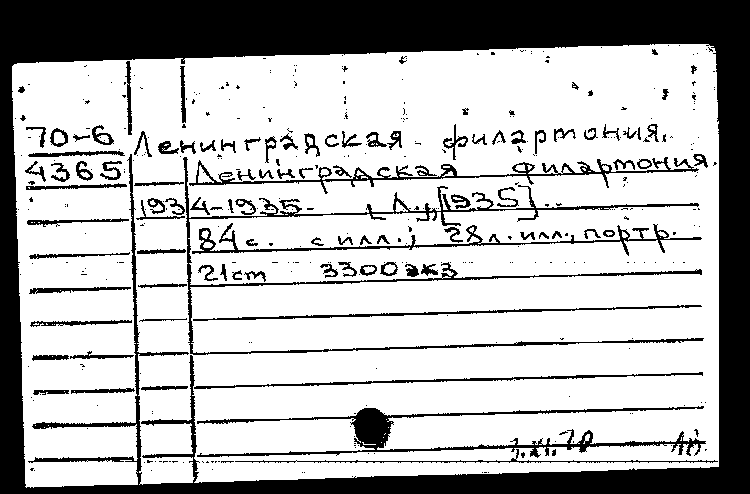 70-6 Ленинградская филармония.
4365 Ленинградская филармония.
1934-1935. [Л.], [1935]..
84 с. с илл.; 28 л. илл., портр.
21 cm 3300 экз
3.XI.70